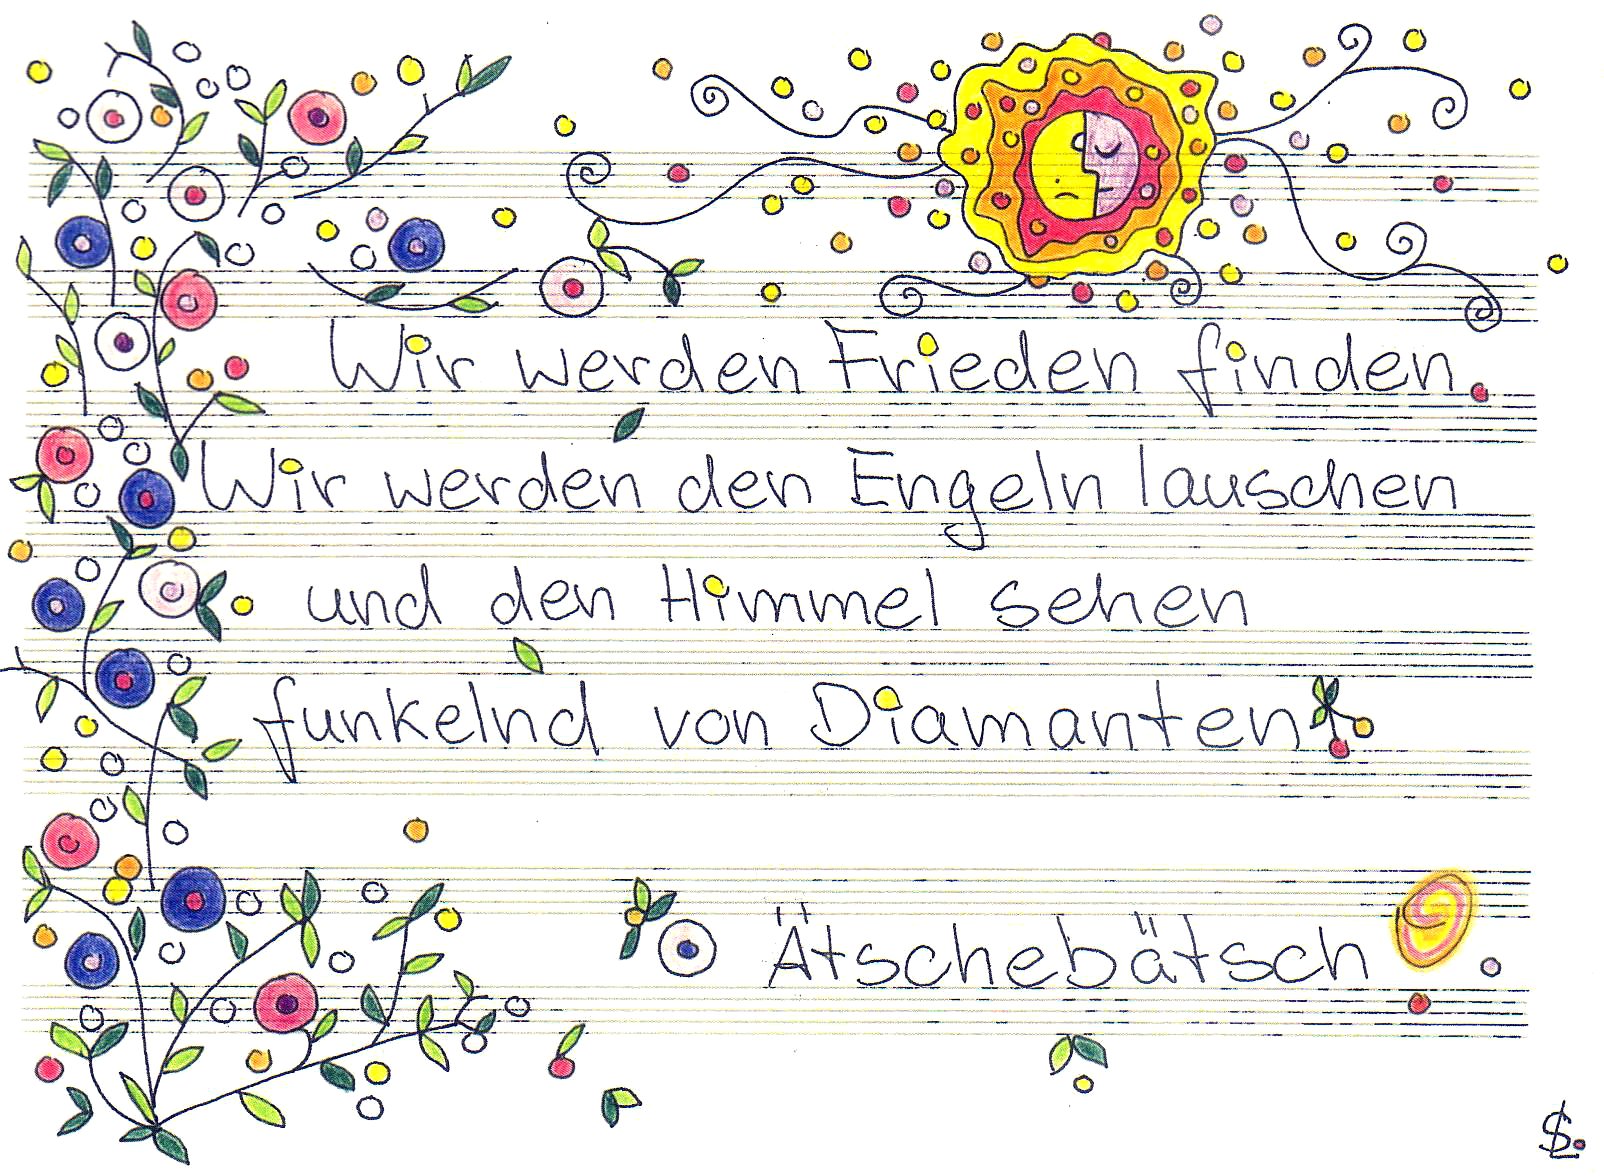 Wir werden Frieden finden.
Wir werden den Engeln lauschen
und den Himmel sehen
funkelnd von Diamanten
Ätschebätsch